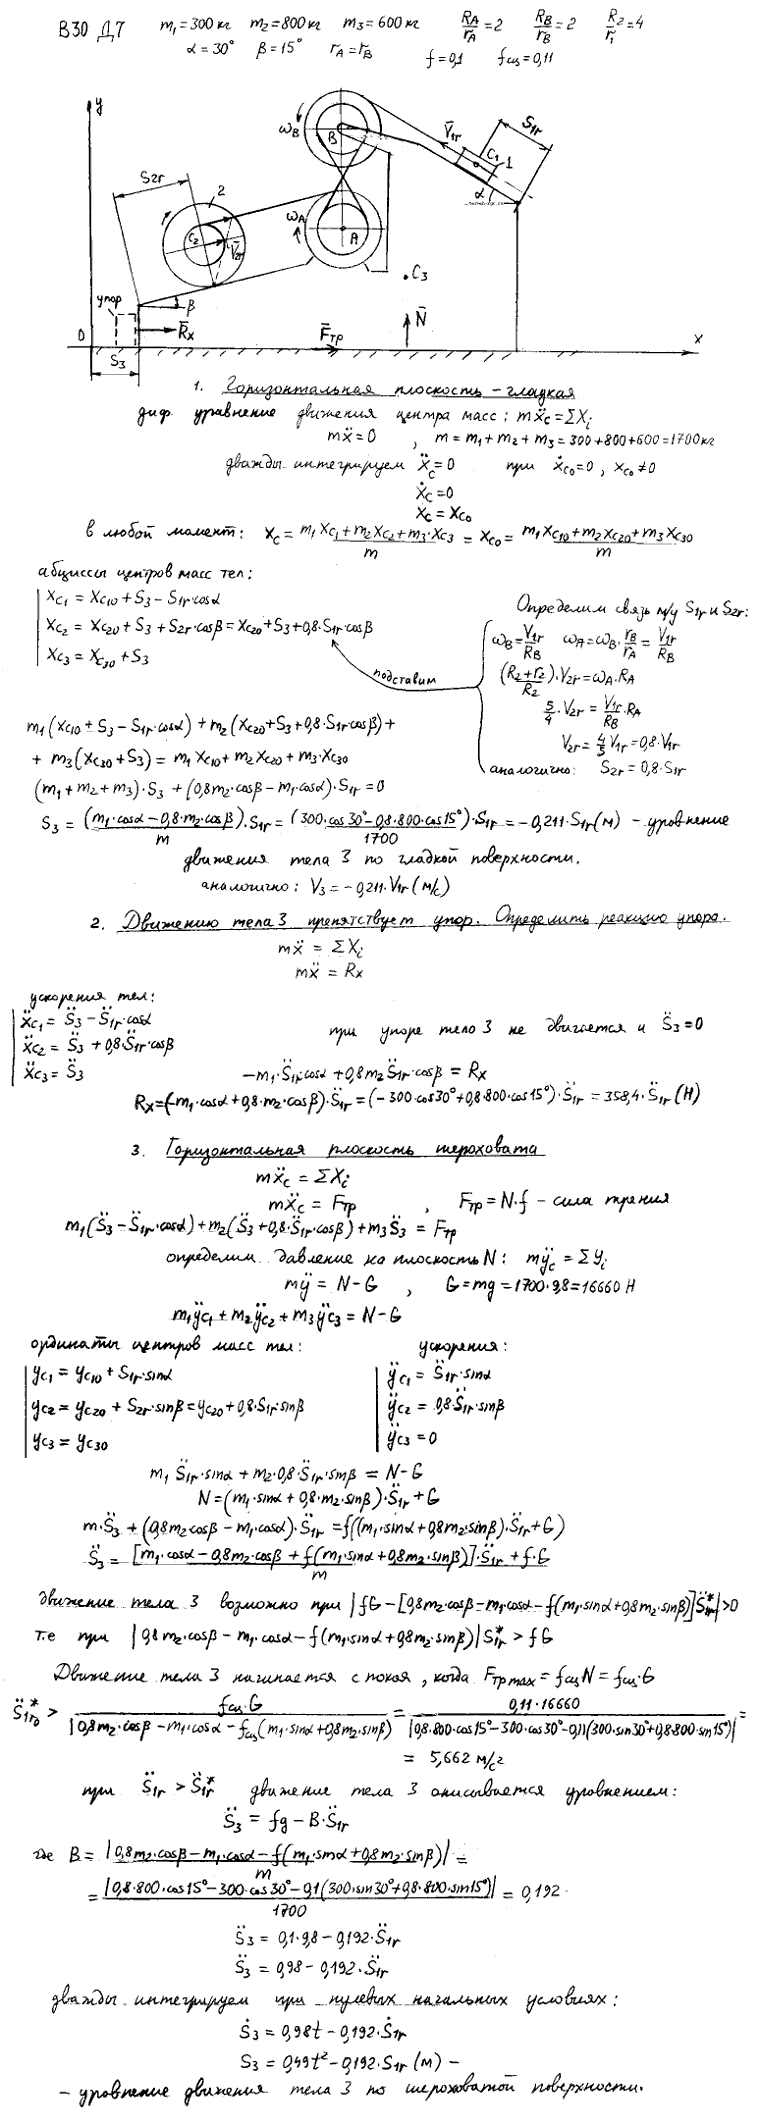 В30 Д7 m₁=300кг m₂=800кг m₃=600кг R_A/r_A=2 R_B/r_B=2 R₂/r₂=4
α=30° β=15° r_A=r_B f=0,1 f_сц=0,11
y
ω_B B V̄₁r S₁r
C₁ 1
α
S₂r 2
C₂ V̄₂r ω_A A
C₃
упор β
R̄x F̄тр N̄
0 S₃ x
1. Горизонтальная плоскость – гладкая
диф. уравнение движения центра масс: mẍ_C=ΣX_i
mẍ=0 , m=m₁+m₂+m₃=300+800+600=1700кг
дважды интегрируем ẍ_C=0 при ẋ_C0=0, x_C0≠0
ẋ_C=0
x_C=x_C0
в любой момент: x_C=(m₁x_C1+m₂x_C2+m₃·x_C3)/m = x_C0 = (m₁x_C10+m₂x_C20+m₃x_C30)/m
абциссы центров масс тел:
x_C1 = x_C10+S₃–S₁r·cosα
x_C2 = x_C20+S₃+S₂r·cosβ=x_C20+S₃+0,8·S₁r·cosβ
x_C3 = x_C30+S₃
Определим связь м/у S₁r и S₂r:
ω_B=V₁r/R_B ω_A=ω_B·r_B/r_A=V₁r/R_B
((R₂+r₂)/R₂)·V₂r=ω_A·R_A
5/4·V₂r=V₁r/R_B·R_A
V₂r=4/5 V₁r=0,8·V₁r
аналогично: S₂r=0,8·S₁r
подставим
m₁(x_C10+S₃–S₁r·cosα)+m₂(x_C20+S₃+0,8·S₁r·cosβ)+
+ m₃(x_C30+S₃)=m₁x_C10+m₂x_C20+m₃·x_C30
(m₁+m₂+m₃)·S₃+(0,8m₂cosβ–m₁cosα)·S₁r=0
S₃=(m₁·cosα–0,8·m₂·cosβ)/m·S₁r=(300·cos30°–0,8·800·cos15°)/1700·S₁r=–0,211·S₁r(м) – уровнение
движения тела 3 по гладкой поверхности.
аналогично: V₃=–0,211·V₁r(м/с)
2. Движению тела 3 препятствует упор. Определить реакцию упора.
mẍ = ΣX_i
mẍ = Rx
ускорения тел:
ẍ_C1= S̈₃–S̈₁r·cosα
ẍ_C2= S̈₃+0,8·S̈₁r·cosβ
ẍ_C3= S̈₃
при упоре тело 3 не двигается и S̈₃=0
–m₁·S̈₁r·cosα+0,8m₂S̈₁r·cosβ = Rx
Rx=(–m₁·cosα+0,8·m₂·cosβ)·S̈₁r=(–300·cos30°+0,8·800·cos15°)·S̈₁r=358,4·S̈₁r(Н)
3. Горизонтальная плоскость шероховата
mẍ_C = ΣX_i
mẍ_C = Fтр , Fтр=N·f – сила трения
m₁(S̈₃–S̈₁r·cosα)+m₂(S̈₃+0,8·S̈₁r·cosβ)+m₃S̈₃ = Fтр
определим давление на плоскость N: mÿ_C=ΣY_i
mÿ = N–G , G=mg=1700·9,8=16660 Н
m₁ÿ_C1+m₂ÿ_C2+m₃ÿ_C3=N–G
ординаты центров масс тел: ускорения:
y_C1=y_C10+S₁r·sinα ÿ_C1=S̈₁r·sinα
y_C2=y_C20+S₂r·sinβ=y_C20+0,8·S₁r·sinβ ÿ_C2=0,8·S̈₁r·sinβ
y_C3=y_C30 ÿ_C3=0
m₁S̈₁r·sinα+m₂·0,8·S̈₁r·sinβ=N–G
N=(m₁·sinα+0,8·m₂·sinβ)·S̈₁r+G
m·S̈₃+(0,8m₂cosβ–m₁·cosα)·S̈₁r=f((m₁·sinα+0,8m₂sinβ)·S̈₁r+G)
S̈₃=([m₁·cosα–0,8m₂·cosβ+f(m₁·sinα+0,8m₂·sinβ)]·S̈₁r+f·G)/m
движение тела 3 возможно при |fG–[0,8m₂·cosβ–m₁·cosα–f(m₁·sinα+0,8m₂·sinβ)]S̈₁r*|>0
т.е при |0,8m₂·cosβ–m₁·cosα–f(m₁sinα+0,8m₂·sinβ)|S̈₁r*>fG
Движение тела 3 начинается с покоя, когда Fтр max=f_сцN=f_сц·G
S̈₁r₀*>f_сц·G/|0,8m₂·cosβ–m₁·cosα–f_сц(m₁·sinα+0,8m₂·sinβ)|=0,11·16660/|0,8·800·cos15°–300·cos30°–0,11(300·sin30°+0,8·800·sin15°)|=
= 5,662 м/с²
при S̈₁r>S̈₁r* движение тела 3 описывается уровнением:
S̈₃ = fg–B·S̈₁r
где B=|0,8m₂·cosβ–m₁·cosα–f(m₁·sinα+0,8m₂·sinβ)|/m=
=|0,8·800·cos15°–300·cos30°–0,1(300·sin30°+0,8·800·sin15°)|/1700=0,192
S̈₃ = 0,1·9,8–0,192·S̈₁r
S̈₃ = 0,98–0,192·S̈₁r
дважды интегрируем при нулевых начальных условиях:
Ṡ₃ = 0,98t–0,192·Ṡ₁r
S₃ = 0,49t²–0,192·S₁r(м) –
– уровнение движения тела 3 по шероховатой поверхности.